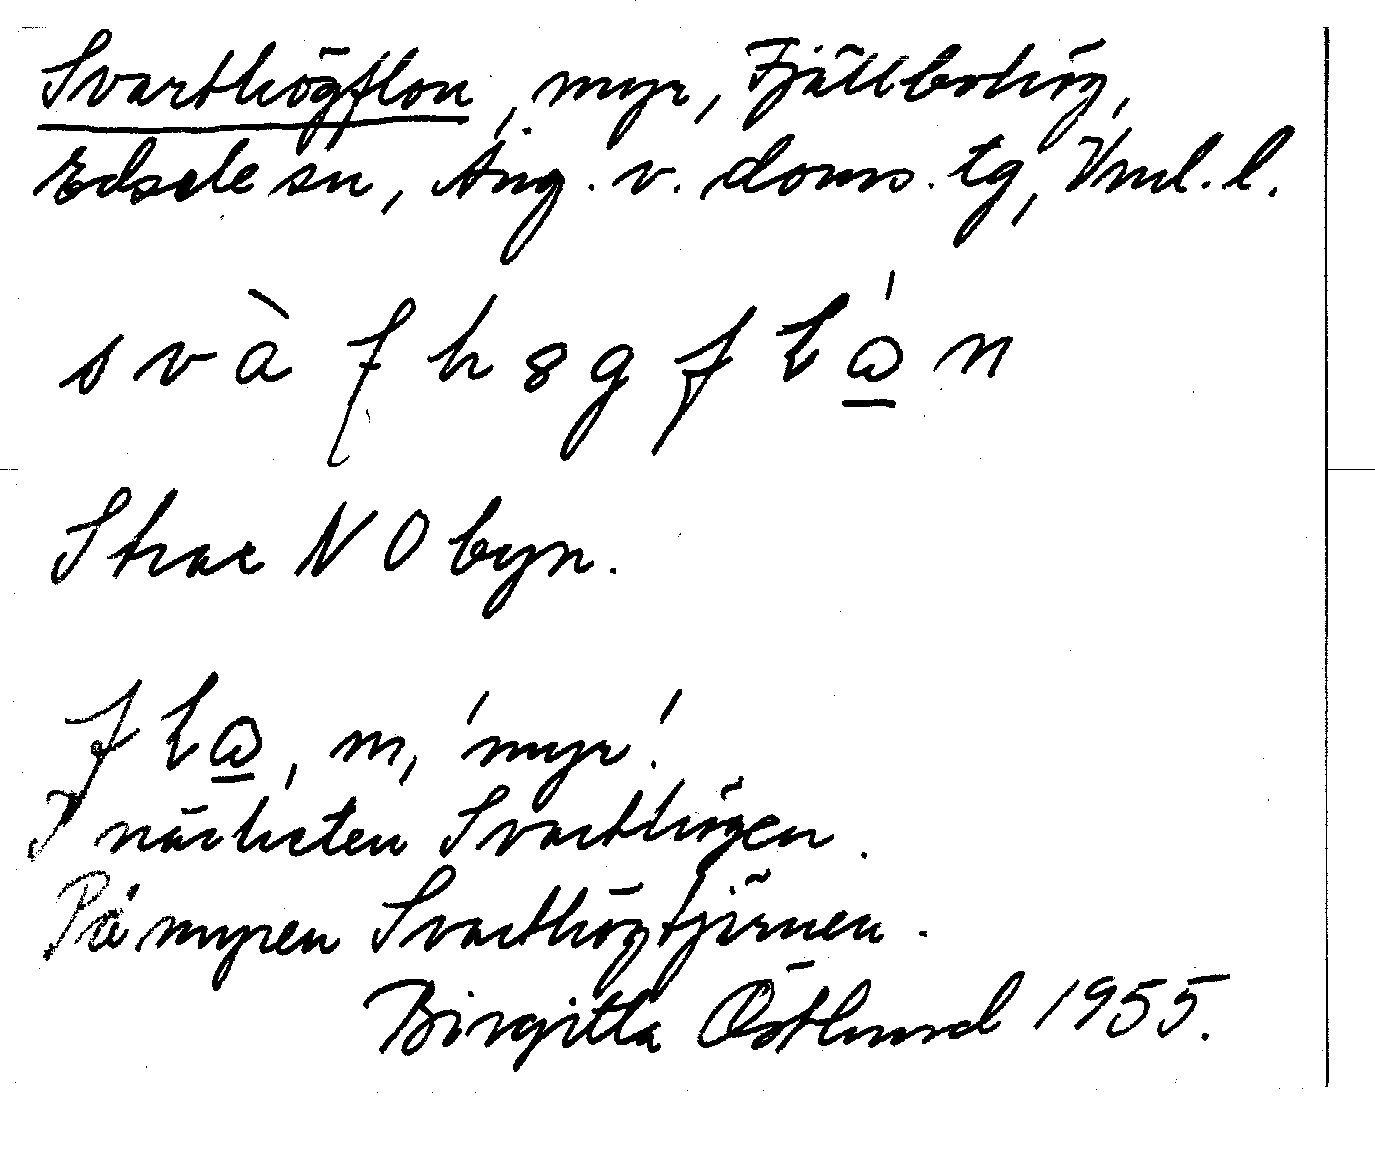 Svarthögflon, myr, Fjällbohög,
Edsele sn, Ång. v. doms. tg, Vnl. l.
Strax NO byn.
m, 'myr'.
I närheten Svarthögen.
På myren Svarthögtjärnen.
Birgitta Östlund 1955.